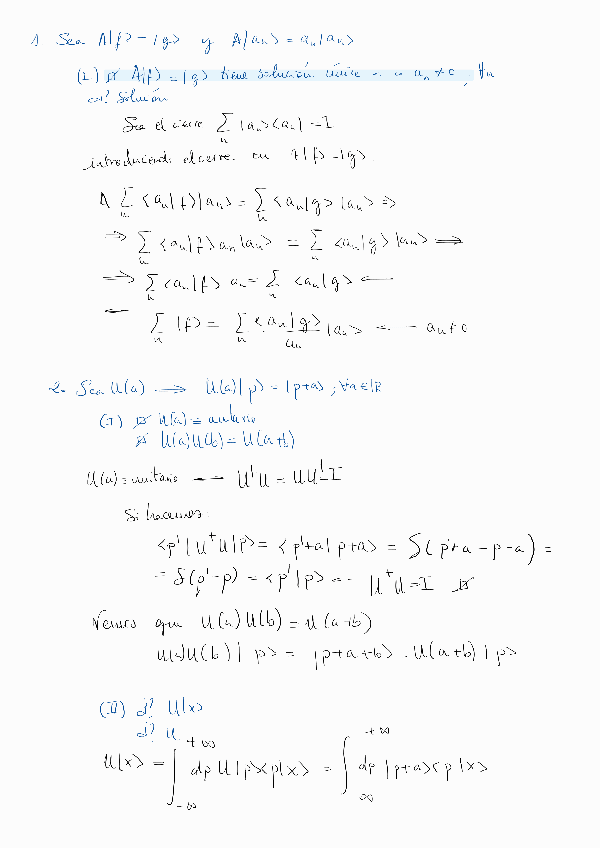 1 Sea A|f> = |g> y A|an> = an|an>
(I) A|f> = |g> tiene solución única an ≠ 0, ∀n
solución
Sea el cierre ∑n |an><an| = I
introduciendo el cierre en A|f> = |g>
A ∑n <an|f>|an> = ∑n <an|g>|an> =>
=> ∑n <an|f> an|an> = ∑n <an|g>|an> =>
=> ∑n <an|f> an = ∑n <an|g>
∑n |f> = ∑n <an|g>/an |an> an ≠ 0
2. Sea U(a) => U(a)|p> = |p+a>; ∀a∈ℝ
(I) U(a) = unitario
U(a)U(b) = U(a+b)
U(a) = unitario U†U = UU† = I
Si hacemos:
<p'|U†U|p> = <p'+a|p+a> = δ(p'+a-p-a) =
= δ(p'-p) = <p'|p> U†U = I
Veamos que U(a)U(b) = U(a+b)
U(a)U(b)|p> = |p+a+b> . U(a+b)|p>
(II) d? U|x>
d? U
U|x> = ∫-∞+∞ dp U|p><p|x> = ∫∞+∞ dp |p+a><p|x>